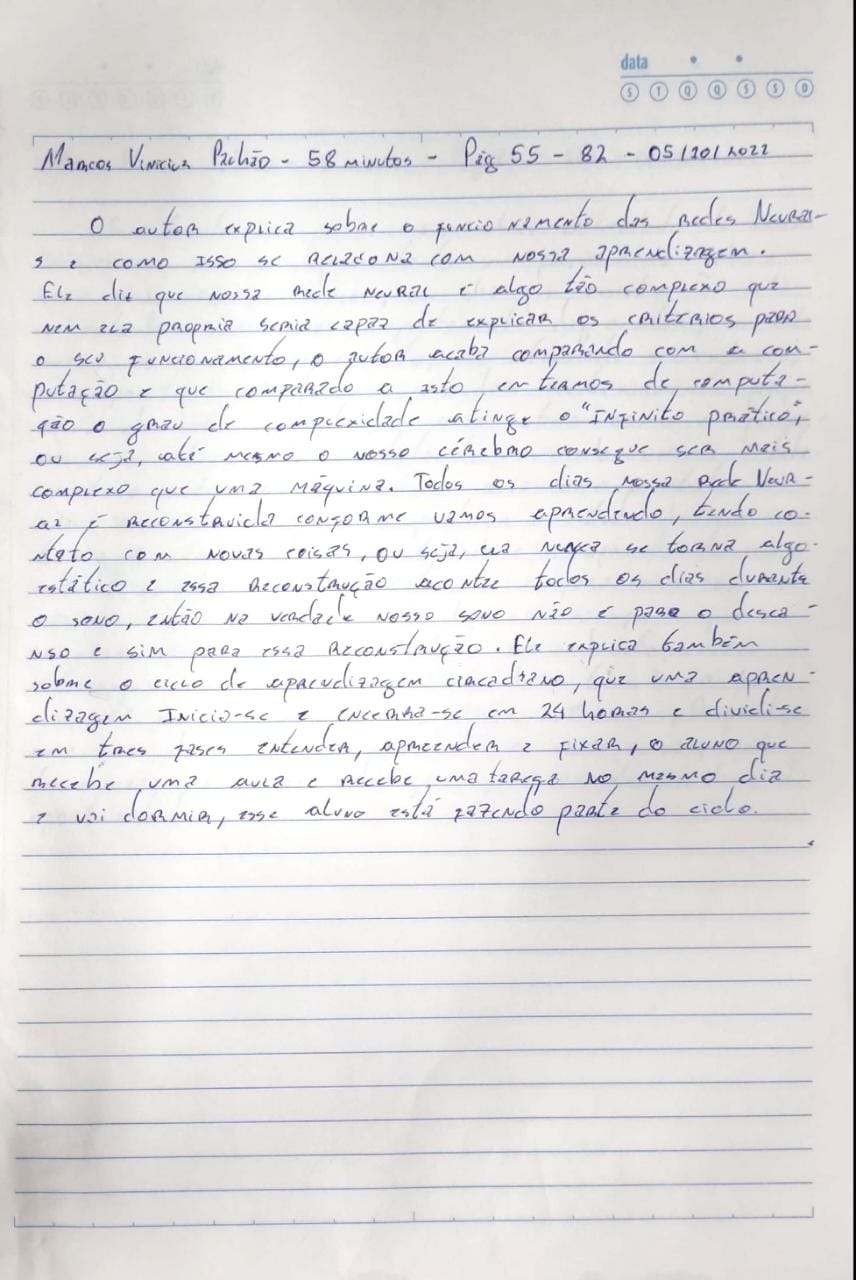 data
S T Q Q S S D
Marcos Vinicius Pachão - 58 minutos - Pág 55 - 82 - 05/10/2022
O autor explica sobre o funcionamento das redes Neurai-
s e como isso se relaciona com nossa aprendizagem.
Ele diz que nossa rede neural é algo tão complexo que
nem ela propria seria capaz de explicar os critérios para
o seu funcionamento, o autor acaba comparando com a com-
putação e que comparado a isto, em termos de computa-
ção o grau de complexidade atinge o "infinito prático",
ou seja, até mesmo o nosso cérebro consegue ser mais
complexo que uma máquina. Todos os dias nossa rede Neur-
al é reconstruida conforme vamos aprendendo, tendo co-
ntato com novas coisas, ou seja, ela nunca se torna algo
estático e essa reconstrução acontece todos os dias durante
o sono, então na verdade nosso sono não é para o desca-
nso e sim para essa reconstrução. Ele explica também
sobre o ciclo de aprendizagem circadiano, que uma apren-
dizagem inicia-se e encerra-se em 24 horas e dividi-se
em tres fases entender, apreender e fixar, o aluno que
recebe uma aula e recebe uma tarefa no mesmo dia
e vai dormir, esse aluno está fazendo parte do ciclo.